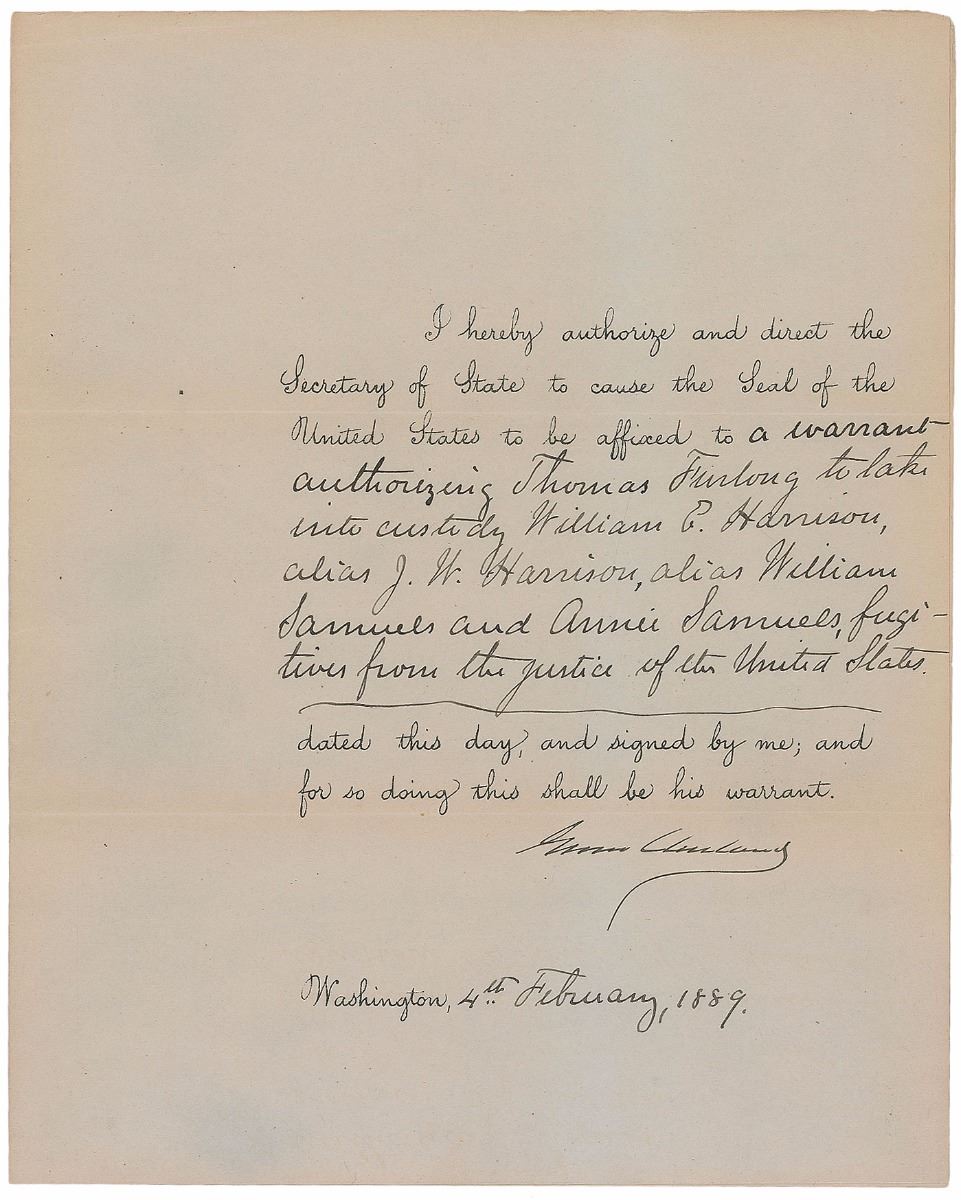 I hereby authorize and direct the
Secretary of State to cause the Seal of the
United States to be affixed to a warrant
authorizing Thomas Furlong to take
into custody William E. Harrison,
alias J. W. Harrison, alias William
Samuels and Annie Samuels, fugi-
tives from the justice of the United States.
dated this day, and signed by me; and
for so doing this shall be his warrant.
Grover Cleveland
Washington, 4th February, 1889.